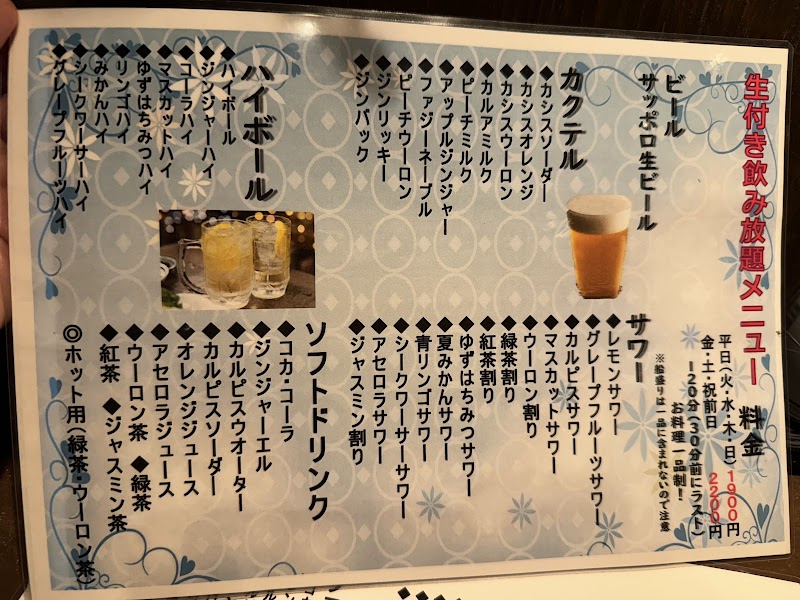 生付き飲み放題メニュー 料金
平日(火・水・木・日) 1900円
金・土・祝前日 2200円
120分(30分前にラスト)
お料理一品制!
※船盛りは一品に含まれないので注意
ビール
サッポロ生ビール
カクテル
◆カシスソーダー
◆カシスオレンジ
◆カシスウーロン
◆カルアミルク
◆ピーチミルク
◆アップルジンジャー
◆ファジーネーブル
◆ピーチウーロン
◆ジンリッキー
◆ジンバック
ハイボール
◆ハイボール
◆ジンジャーハイ
◆コーラハイ
◆マスカットハイ
◆ゆずはちみつハイ
◆リンゴハイ
◆みかんハイ
◆シークワーサーハイ
◆グレープフルーツハイ
サワー
◆レモンサワー
◆グレープフルーツサワー
◆カルピスサワー
◆マスカットサワー
◆ウーロン割り
◆緑茶割り
◆紅茶割り
◆ゆずはちみつサワー
◆夏みかんサワー
◆青リンゴサワー
◆シークワーサーサワー
◆アセロラサワー
◆ジャスミン割り
ソフトドリンク
◆コカ・コーラ
◆ジンジャーエル
◆カルピスウオーター
◆カルピスソーダー
◆オレンジジュース
◆アセロラジュース
◆ウーロン茶 ◆緑茶
◆紅茶 ◆ジャスミン茶
◎ホット用(緑茶・ウーロン茶)